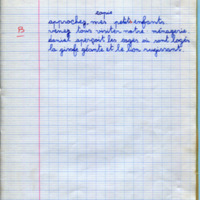 copie
B
approchez, mes petits enfants.
venez tous visiter notre ménagerie.
daniel aperçoit les cages où sont logés
la girafe géante et le lion rugissant.